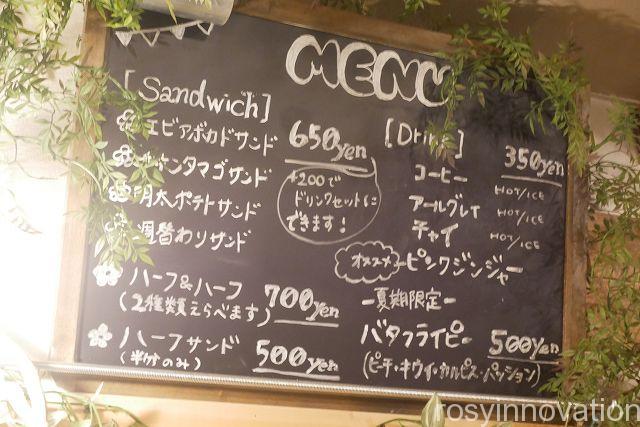 MENU
[Sandwich]
エビアボカドサンド 650yen
タマゴサンド
明太ポテトサンド
週替わりサンド
+200で
ドリンクセットに
できます!
ハーフ&ハーフ
(2種類えらべます) 700yen
ハーフサンド
(半分のみ) 500yen
[Drink] 350yen
コーヒー HOT/ICE
アールグレイ HOT/ICE
チャイ HOT/ICE
オススメ ピンクジンジャー
-夏期限定-
バタフライピー 500yen
(ピーチ・キウイ・カルピス・パッション)
rosyinnovation